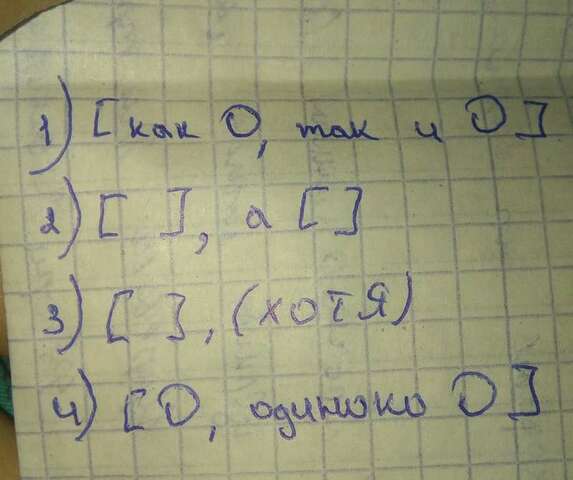 1) [как О, так и О]
2) [ ], а [ ]
3) [ ], (хотя)
4) [О, одиноко О]